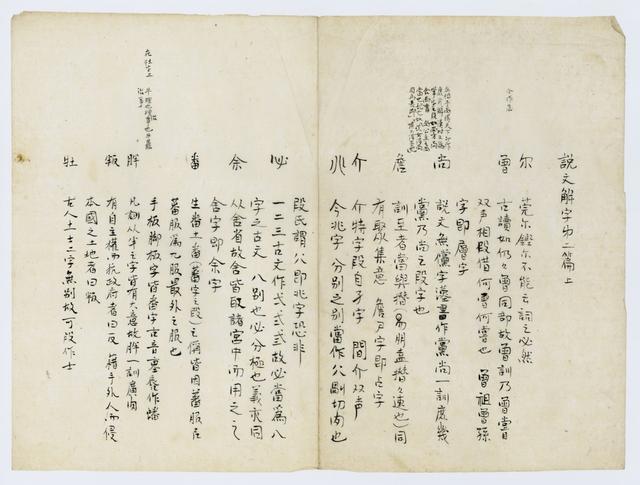 說文解字弟二篇上
尔 莞尔鏗尔不能云詞之必然
曾 古讀如仍々曾同部故曾訓乃曾
双声相叚借何曾何嘗也 曾祖曾孫
字即層字
尚 說文無儻字漢書作黨尚一訓庶幾
黨乃尚之叚字也
詹 訓至者當與朁(易朋盍朁々速也)同
有聚集意 詹尹字即占字
介 介特字叚自孑字 間介双声
兆 今兆字 分別之別當作 切肉也
段氏謂八即兆字恐非
必 一二三古文作弌弍弎故必當爲八
字之古文 八別也必分極也義亦同
余 从舍省故舍皆取諸宮中而用之之
舍字即余字
番 生番土番(番字之叚)之偁皆因蕃服在
蕃服爲九服最外之服也
手板脚板字皆番字古音重唇作蟠
胖 凡訓从半之字皆有大意故胖一訓廣肉
叛 有自主權而抗政府者曰反 藉手外人而侵
本國之土地者曰叛
牡 古人土士二字無別故可叚作士
在牡字上